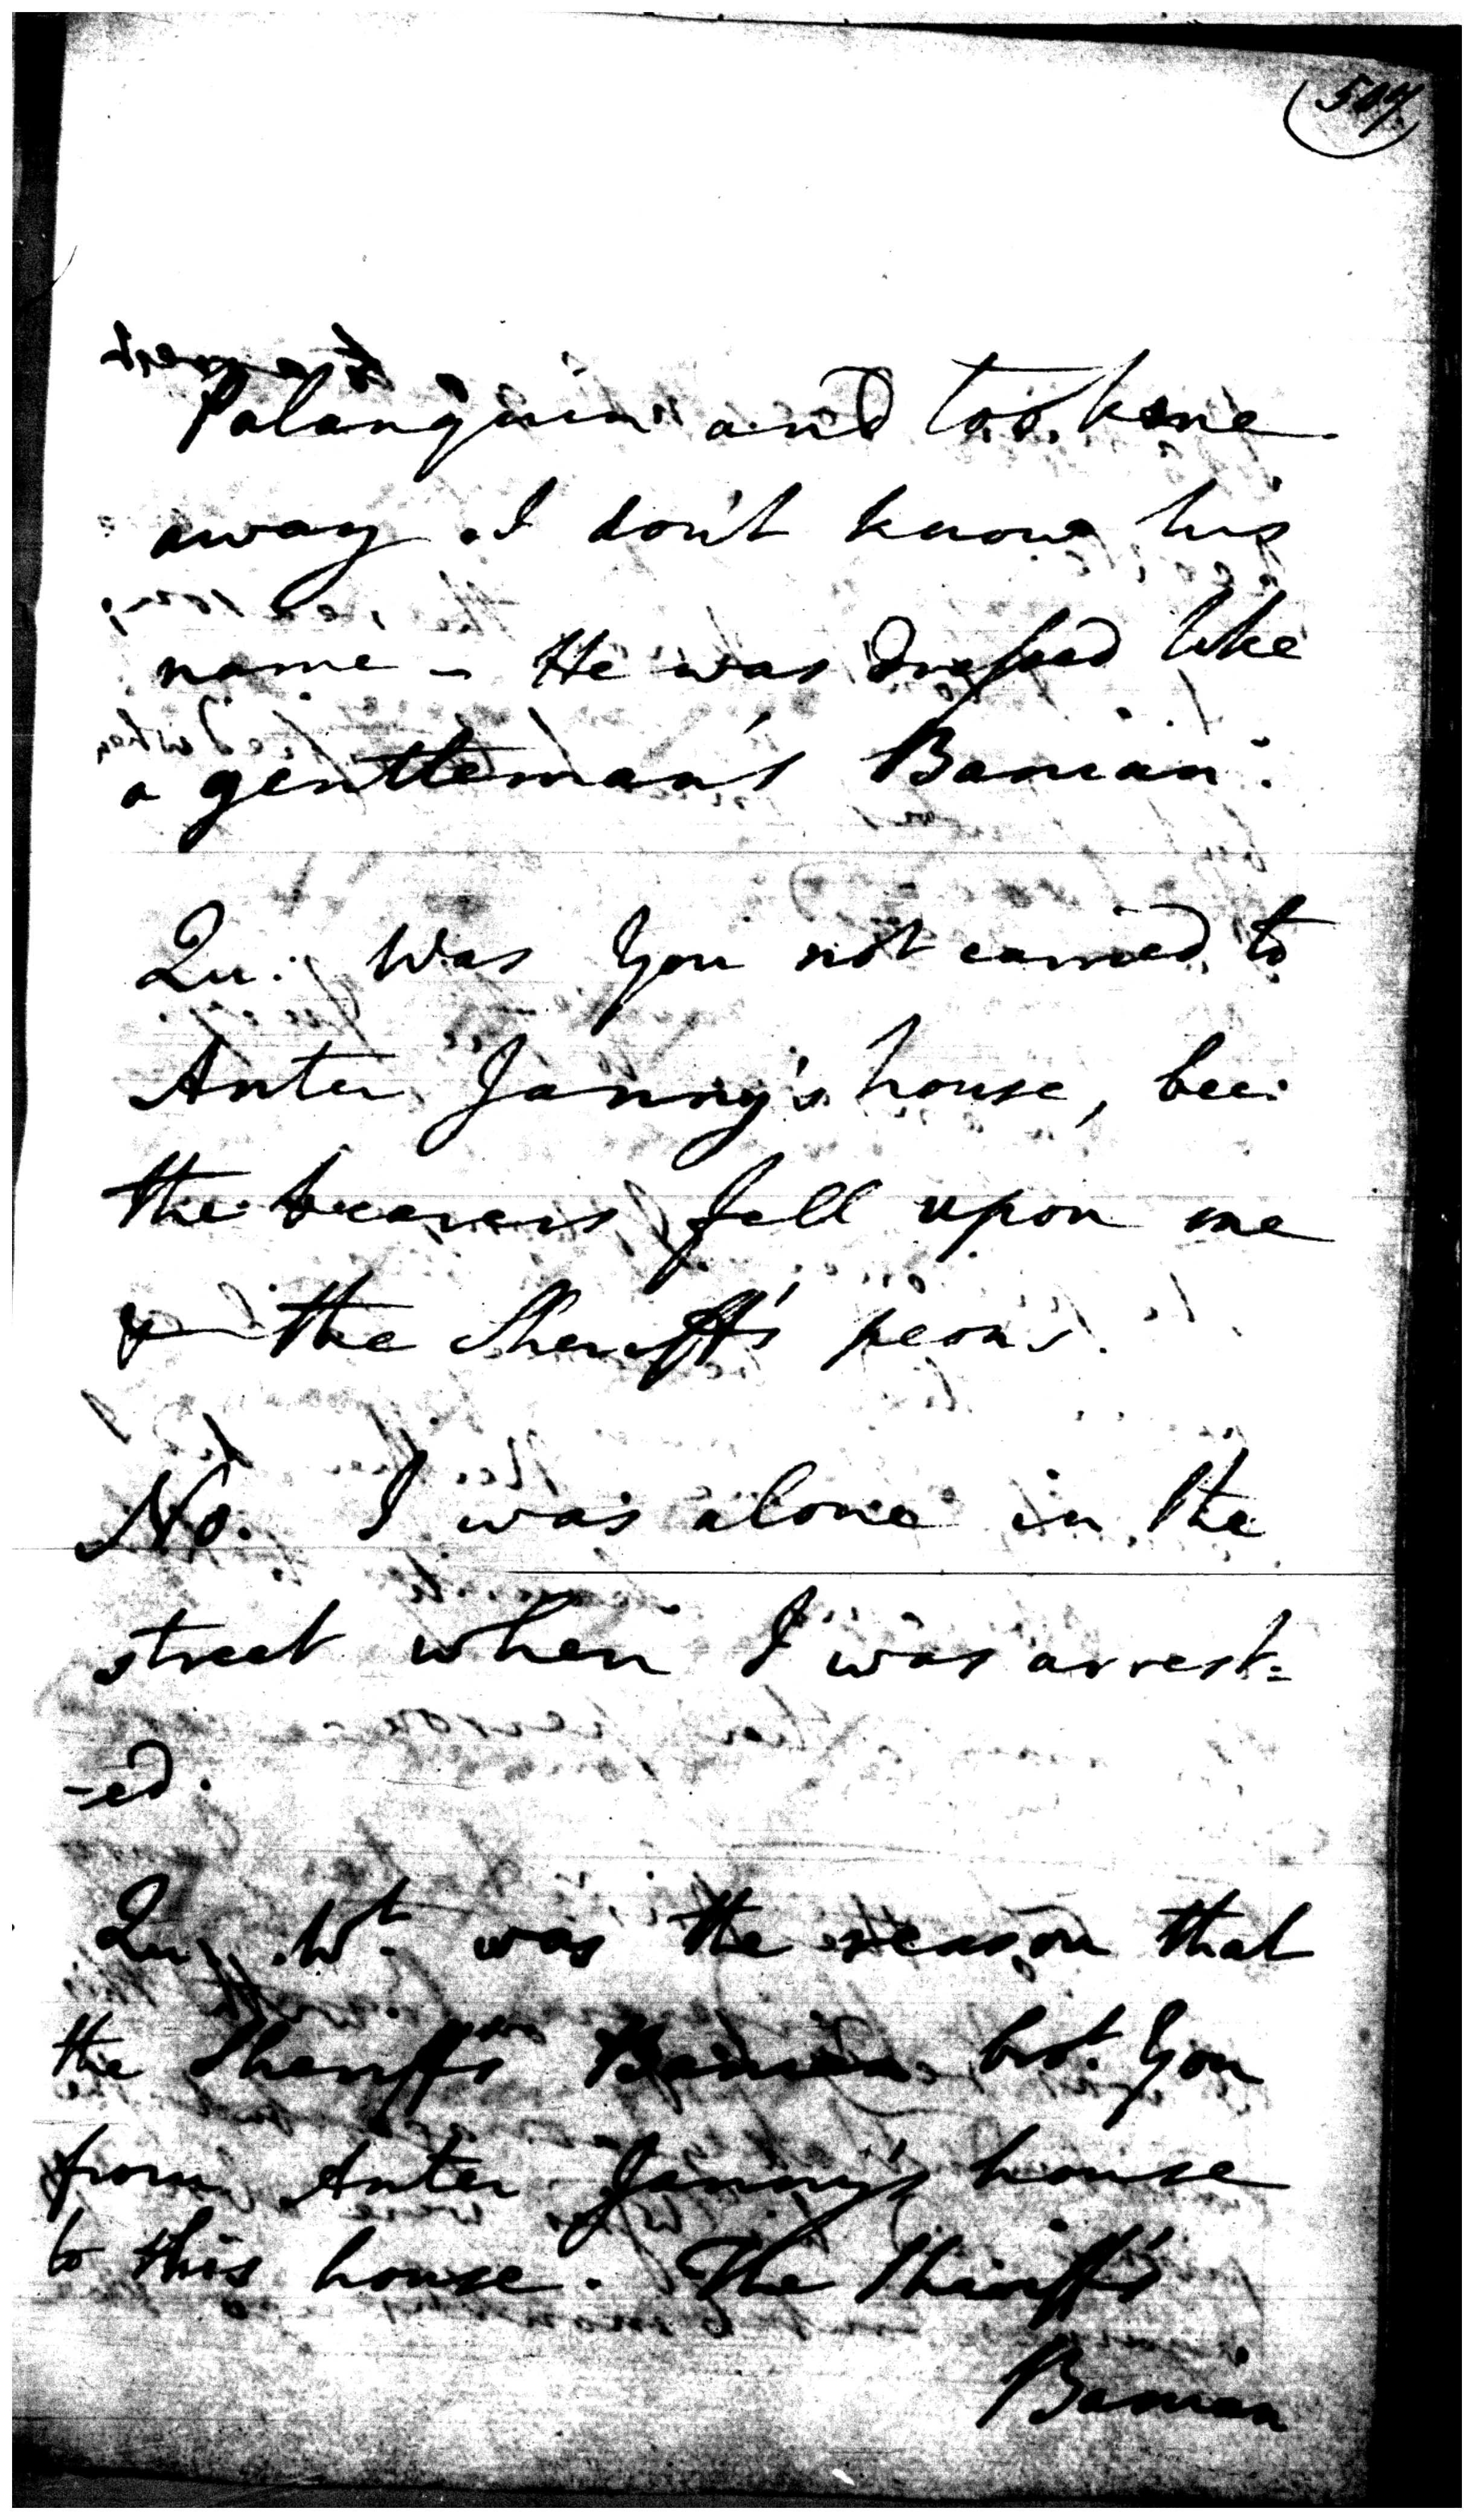 Palanquin and took me
away. I don't know his
name - He was dressed like
a gentleman's Banian.
Qu: Was You not carried to
Anter Janny's house, bee:
the bearers fell upon me
& the Sheriff's peons.
No. I was alone in the
street when I was arrest=
-ed.
Qu. Wt. was the reason that
the Sheriff's Banian brt. You
from Anter Janny's house
to this house. The Sheriff's
Banian